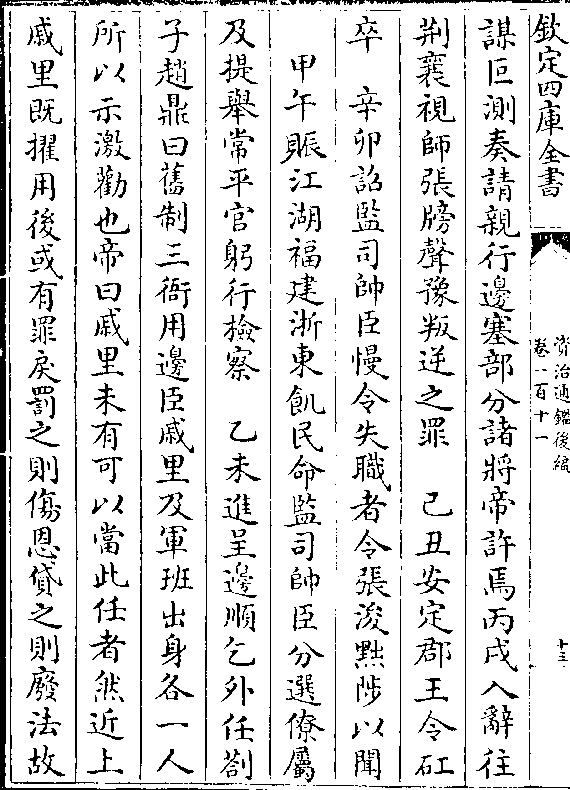 欽定四庫全書
資治通鑑後編
卷一百十一
十三
謀叵測奏請親行邊塞部分諸將帝許焉丙戌入辭往
荆襄視師張牓聲豫叛逆之罪　己丑安定郡王令矼
卒　辛卯詔監司帥臣慢令失職者令張浚黜陟以聞
甲午賑江湖福建浙東飢民命監司帥臣分選僚屬
及提舉常平官躬行檢察　乙未進呈邊順乞外任劄
子趙鼎曰舊制三衙用邊臣戚里及軍班出身各一人
所以示激勸也帝曰戚里未有可以當此任者然近上
戚里既擢用後或有罪戾罰之則傷恩貸之則廢法故